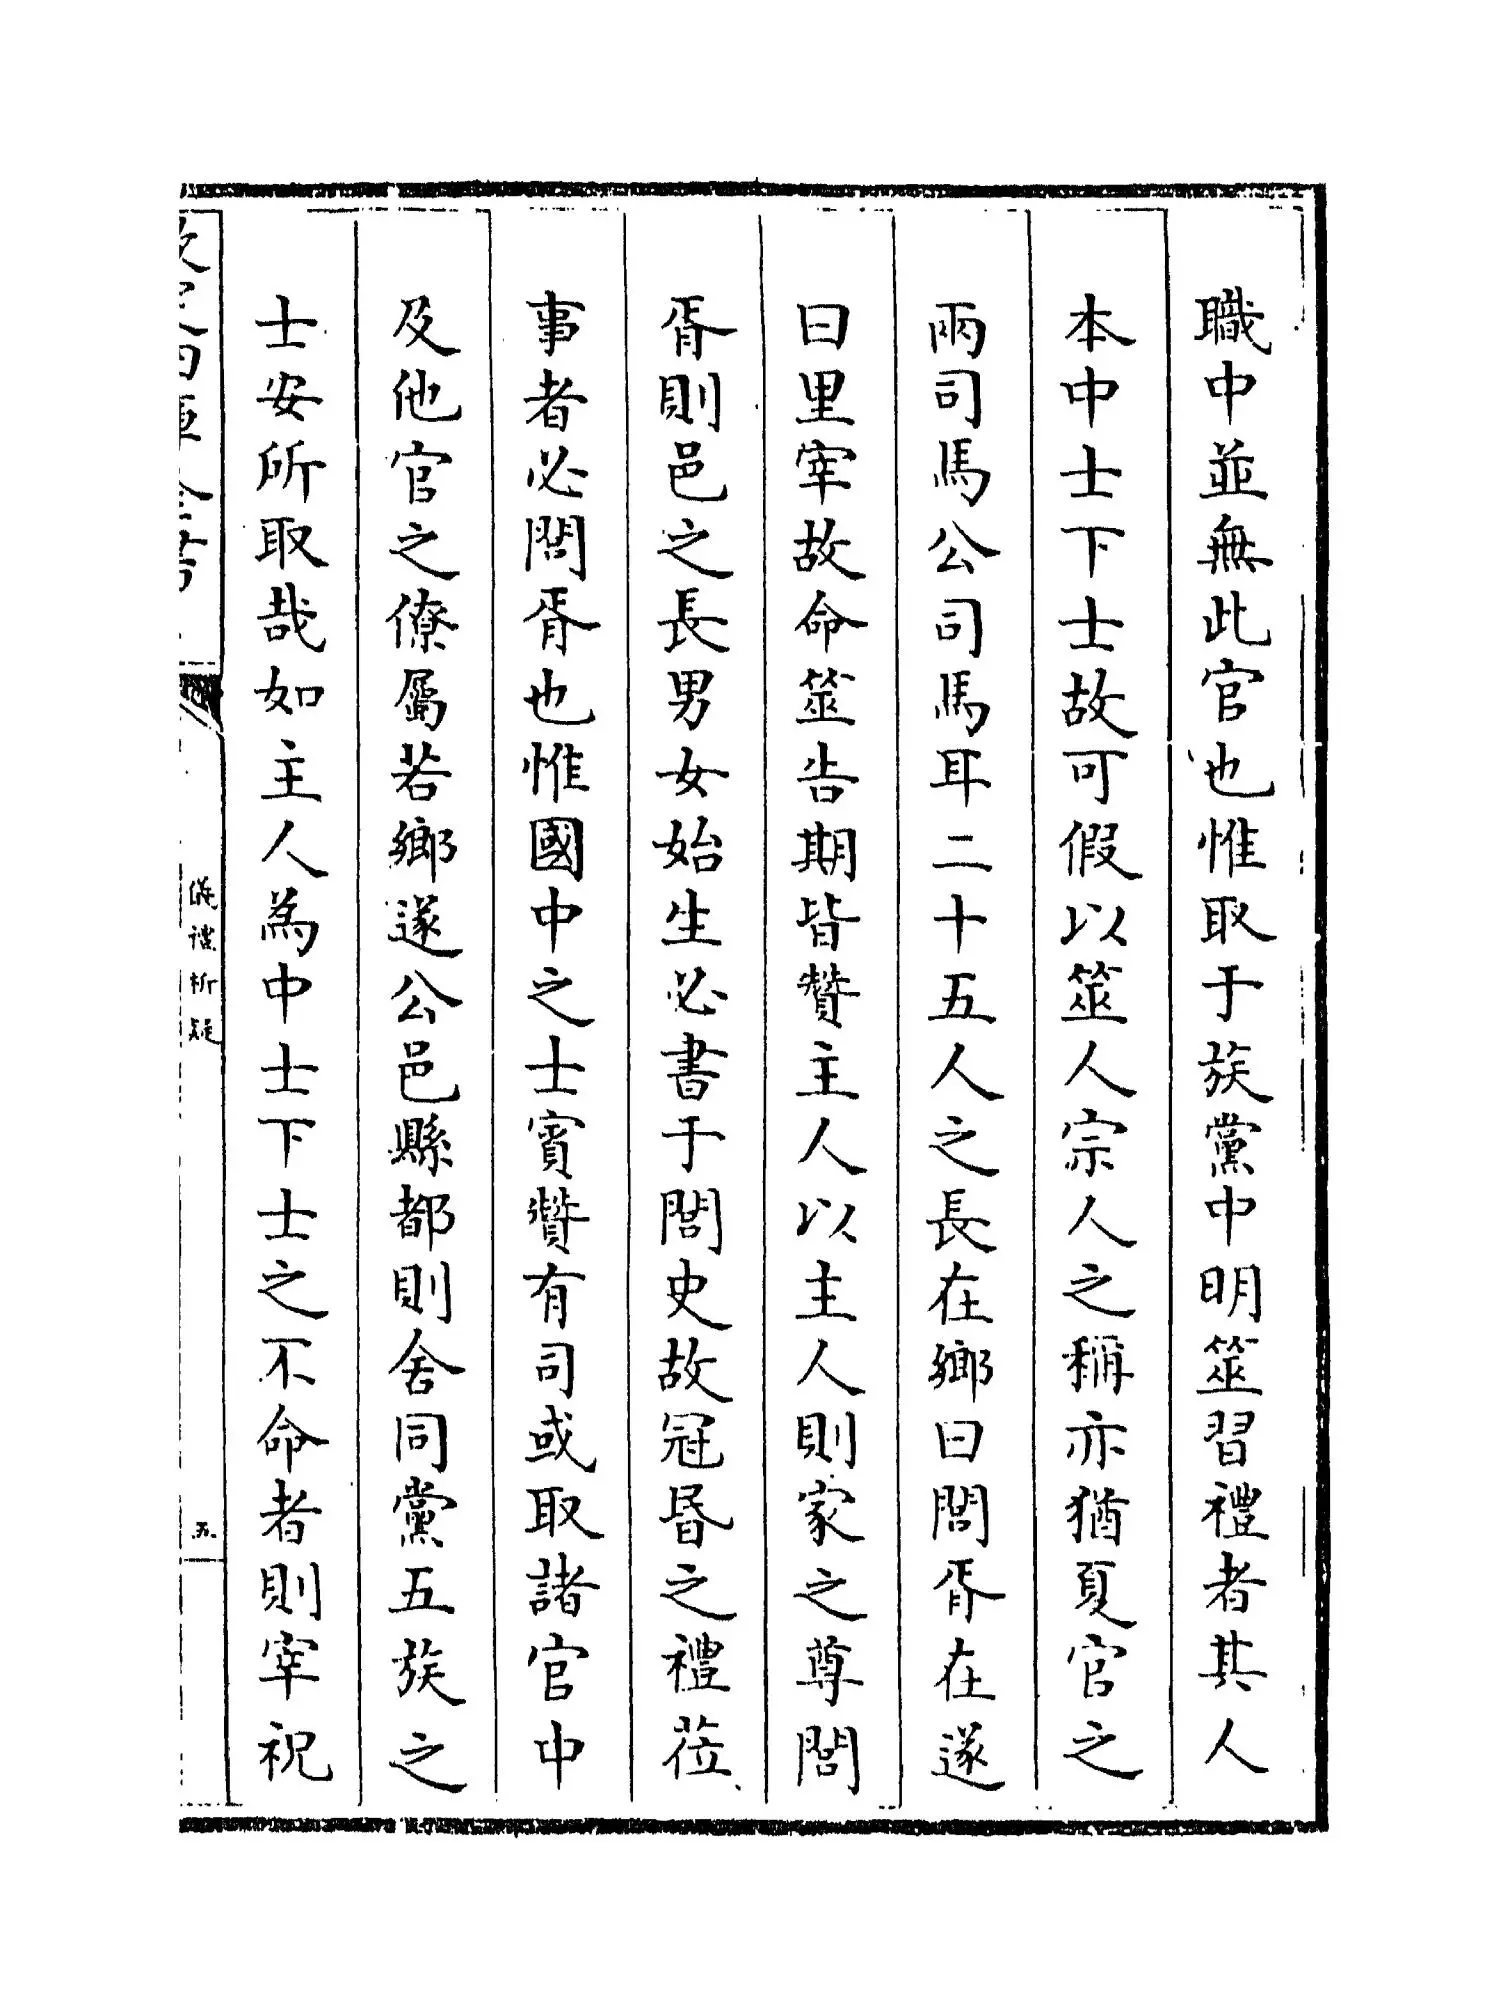 職中並無此官也惟取于族黨中明筮習禮者其人
本中士下士故可假以筮人宗人之稱亦猶夏官之
兩司馬公司馬耳二十五人之長在鄉曰閭胥在遂
曰里宰故命筮告期皆贊主人以主人則家之尊閭
胥則邑之長男女始生必書于閭史故冠昏之禮莅
事者必閭胥也惟國中之士賓贊有司或取諸官中
及他官之僚屬若鄉遂公邑縣都則舍同黨五族之
士安所取哉如主人為中士下士之不命者則宰祝
欽定四庫全書
儀禮析疑
五